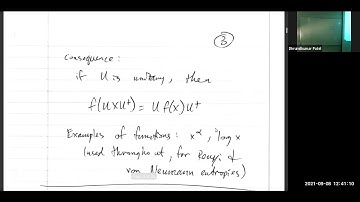 3
Consequence:
if U is unitary, then
f(UXU†) = U f(X) U†
Examples of functions: x^α, log x
(used throughout, for Renyi &
von Neumann entropies)
Dhrumilkumar Patel
2021-09-08 12:41:10